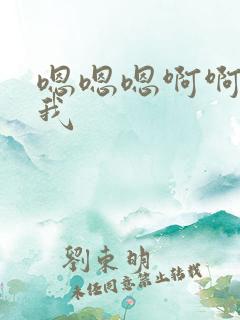 嗯嗯嗯啊啊
我
劉東明
未经同意禁止转载